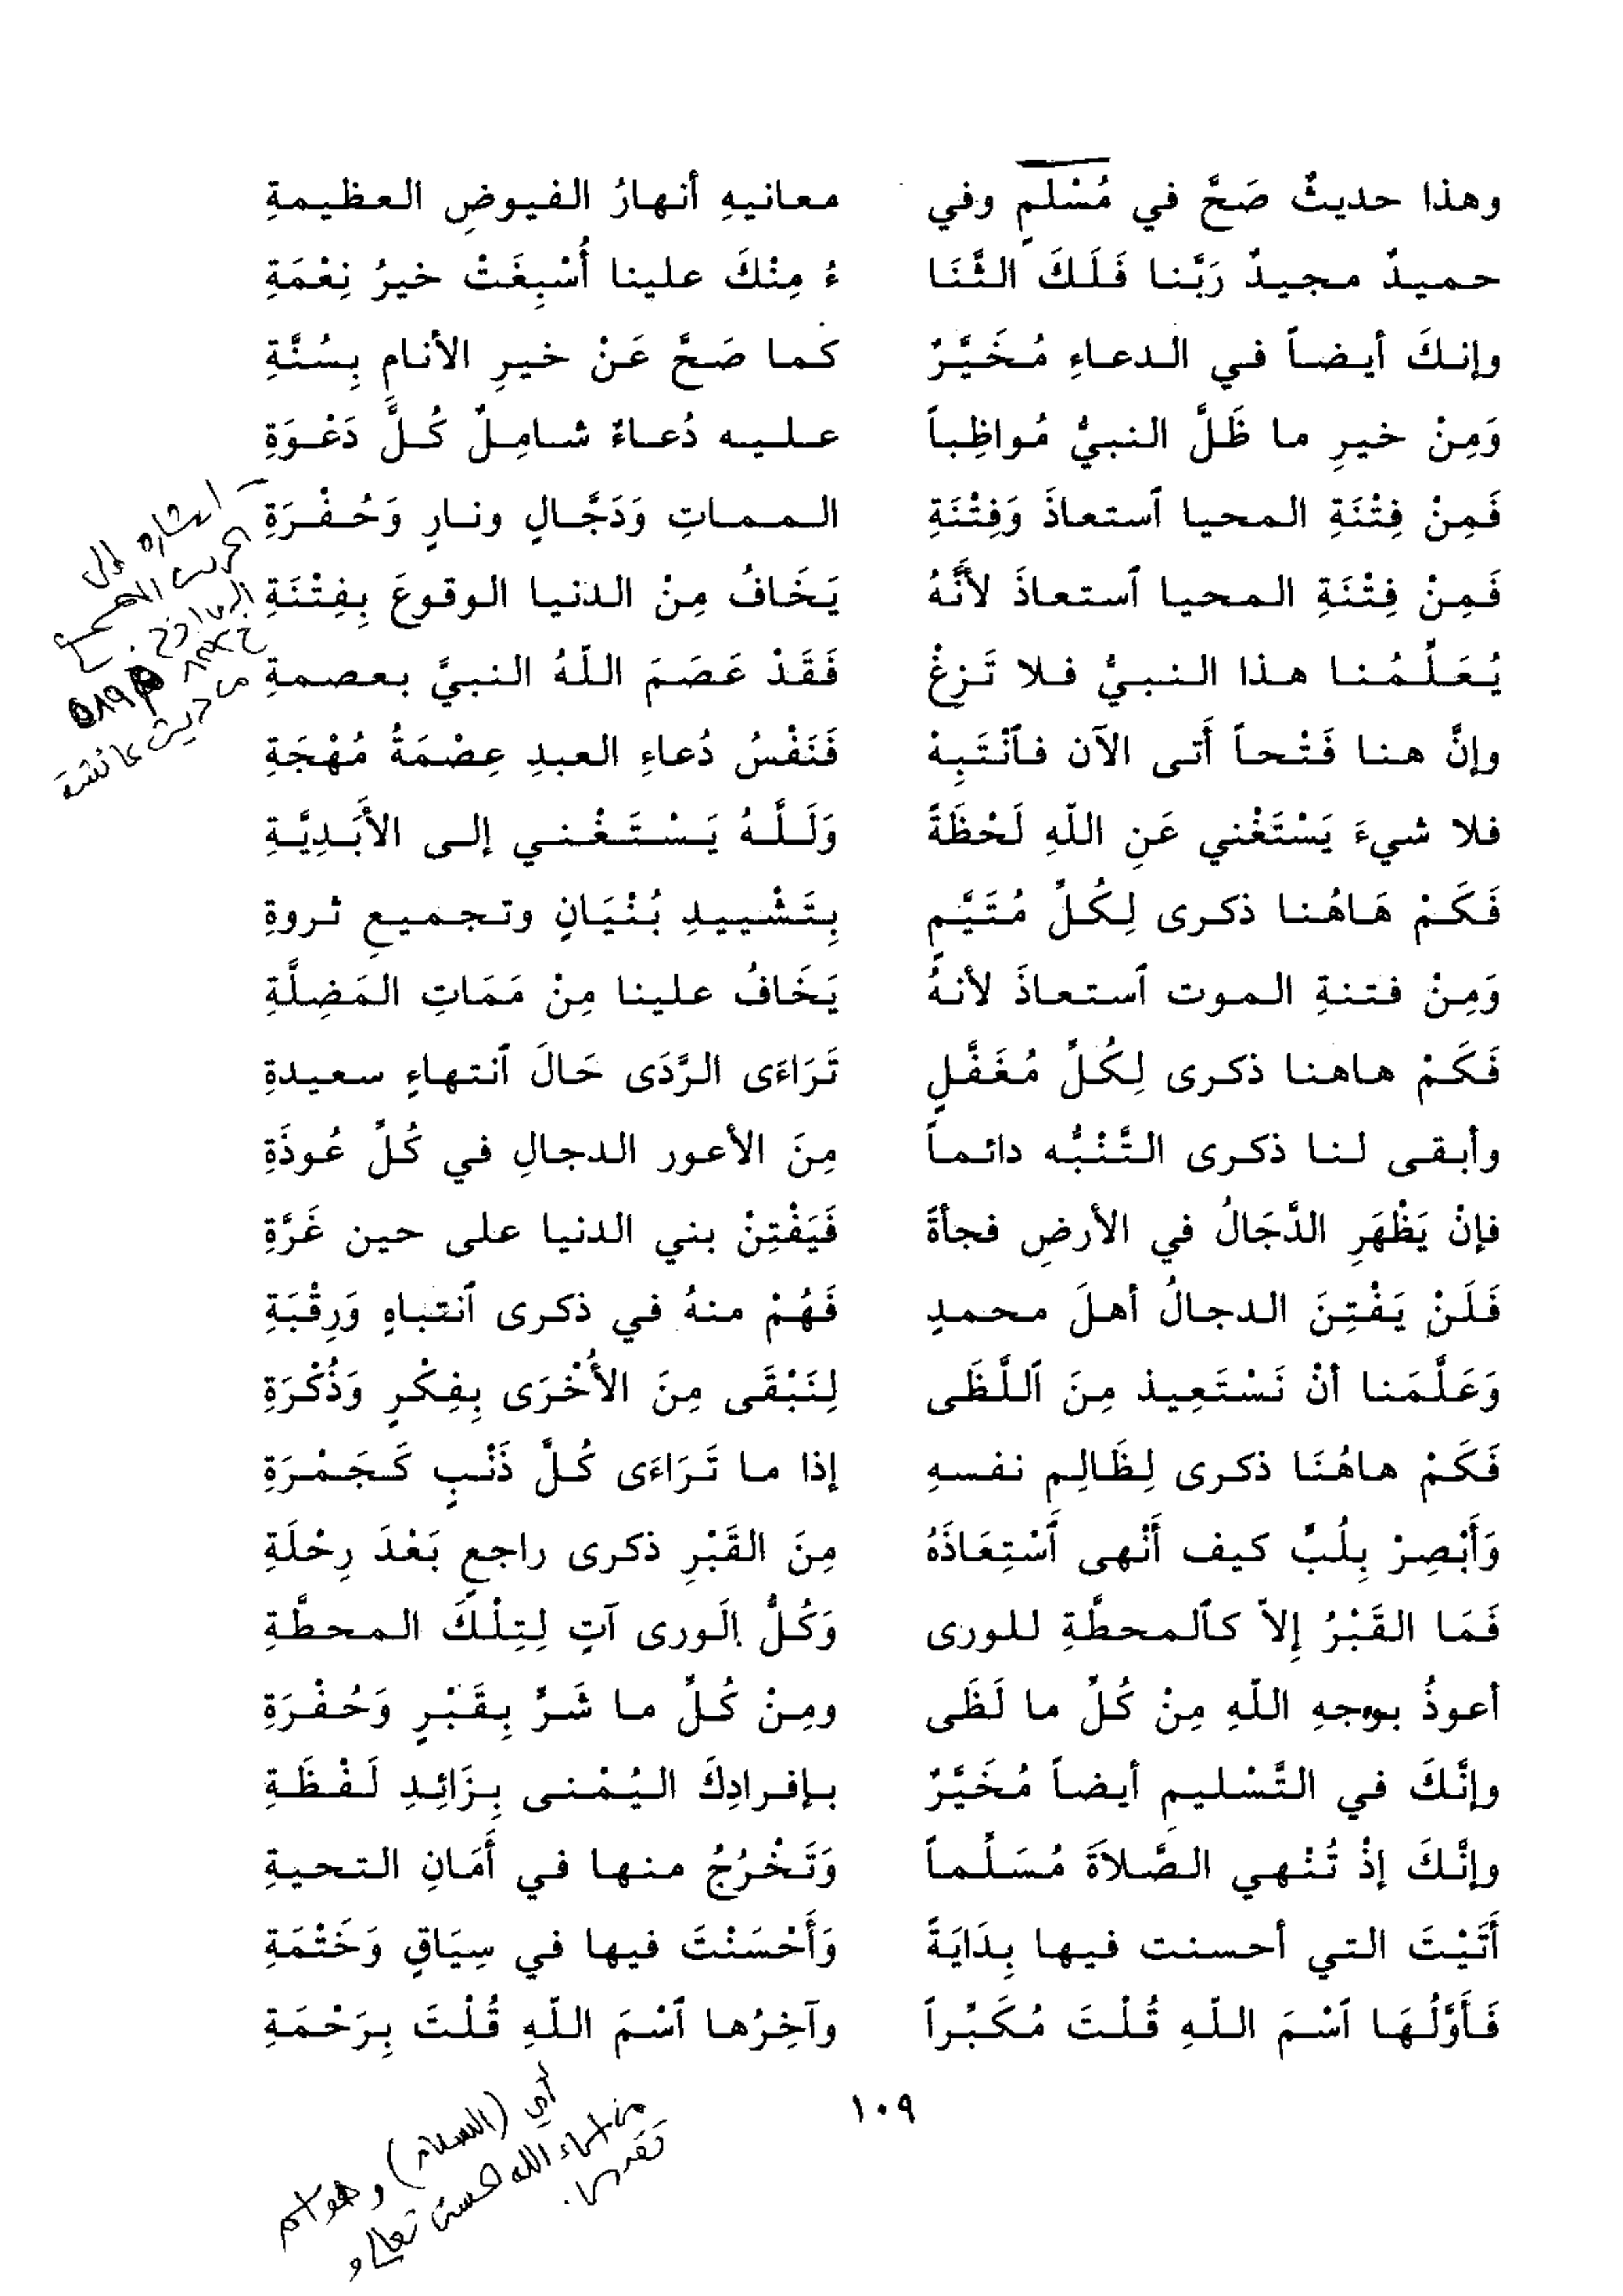 وهذا حديثٌ صَحَّ في مُسْلمٍ وفي معانيهِ أنهارُ الفيوضِ العظيمةِ
حميدٌ مجيدٌ رَبَّنا فَلَكَ الثَّنَا ءُ مِنْكَ علينا أُسْبِغَتْ خيرُ نِعْمَةِ
وإنكَ أيضاً في الدعاءِ مُخَيَّرٌ كما صَحَّ عَنْ خيرِ الأنامِ بِسُنَّةِ
وَمِنْ خيرِ ما ظَلَّ النبيُّ مُواظِباً عليه دُعاءٌ شامِلٌ كُلَّ دَعْوَةِ
فَمِنْ فِتْنَةِ المحيا ٱستعاذَ وَفِتْنَةِ المماتِ وَدَجَّالٍ ونارٍ وَحُفْرَةِ
فَمِنْ فِتْنَةِ المحيا ٱستعاذَ لأَنَّهُ يَخَافُ مِنْ الدنيا الوقوعَ بِفِتْنَةِ
يُعَلِّمُنا هذا النبيُّ فلا تَزِغْ فَقَدْ عَصَمَ اللّهُ النبيَّ بعصمةِ
وإنَّ هنا فَتْحاً أَتى الآن فٱنْتَبِهْ فَنَفْسُ دُعاءِ العبدِ عِصْمَةُ مُهْجَةِ
فلا شيءَ يَسْتَغْني عَنِ اللّهِ لَحْظَةً وَلَلَّهُ يَسْتَغْني إلى الأَبَدِيَّةِ
فَكَمْ هَاهُنا ذكرى لِكُلِّ مُتَيَّمٍ بِتَشْييدِ بُنْيَانٍ وتجميعِ ثروةِ
وَمِنْ فتنةِ الموت ٱستعاذَ لأنهُ يَخَافُ علينا مِنْ مَمَاتِ المَضِلَّةِ
فَكَمْ هاهنا ذكرى لِكُلِّ مُغَفَّلٍ تَرَاءَى الرَّدَى حَالَ ٱنتهاءٍ سعيدةِ
وأبقى لنا ذكرى التَّنَبُّه دائماً مِنَ الأعور الدجالِ في كُلِّ عُوذَةِ
فإنْ يَظْهَرِ الدَّجَالُ في الأرضِ فجأةً فَيَفْتِنْ بني الدنيا على حين غَرَّةِ
فَلَنْ يَفْتِنَ الدجالُ أهلَ محمدٍ فَهُمْ منهُ في ذكرى ٱنتباهٍ وَرِقْبَةِ
وَعَلَّمَنا أنْ نَسْتَعِيذ مِنَ ٱللَّظَى لِنَبْقَى مِنَ الأُخْرَى بِفِكْرٍ وَذُكْرَةِ
فَكَمْ هاهُنَا ذكرى لِظَالِمِ نفسهِ إذا ما تَرَاءَى كُلَّ ذَنْبٍ كَجَمْرَةِ
وَأَبْصِرْ بِلُبٍّ كيف أَنْهى ٱسْتِعَاذَهُ مِنَ القَبْرِ ذكرى راجعٍ بَعْدَ رِحْلَةِ
فَمَا القَبْرُ إلاّ كٱلمحطَّةِ للورى وَكُلُّ الَورى آتٍ لِتِلْكَ المحطَّةِ
أعوذُ بوجهِ اللّهِ مِنْ كُلِّ ما لَظَى ومِنْ كُلِّ ما شَرٍّ بِقَبْرٍ وَحُفْرَةِ
وإنَّكَ في التَّسْليمِ أيضاً مُخَيَّرٌ بإفرادِكَ اليُمْنى بِزَائِدِ لَفْظَةِ
وإنَّكَ إذْ تُنْهي الصَّلاَةَ مُسَلِّماً وَتَخْرُجُ منها في أَمَانِ التحيةِ
أَتَيْتَ التي أحسنت فيها بِدَايَةً وَأَحْسَنْتَ فيها في سِيَاقٍ وَخَتْمَةِ
فَأَوَّلُهَا ٱسْمَ اللّهِ قُلْتَ مُكَبِّراً وآخِرُها ٱسْمَ اللّهِ قُلْتَ بِرَحْمَةِ
١٠٩
إشارة إلى
الحديث الصحيح
٨٣٢ م ٥٨٩
من حديث عائشة
أي (السلام) وهو اسم
من أسماء الله الحسنى تعالى و